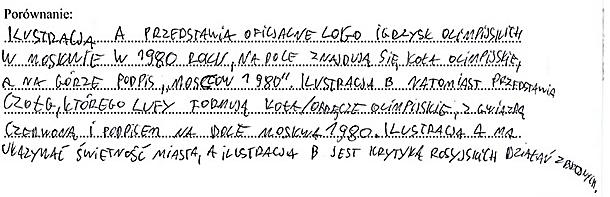 Porównanie:
ILUSTRACJA A PRZEDSTAWIA OFICJALNE LOGO IGRZYSK OLIMPIJSKICH
W MOSKWIE W 1980 ROKU, NA DOLE ZNAJDUJĄ SIĘ KOŁA OLIMPIJSKIE,
A NA GÓRZE PODPIS „MOSCOW 1980". ILUSTRACJA B NATOMIAST PRZEDSTAWIA
CZOŁG, KTÓREGO LUFY FORMUJĄ KOŁA/OBRĘCZE OLIMPIJSKIE, Z GWIAZDĄ
CZERWONĄ I PODPISEM NA DOLE MOSKWA 1980. ILUSTRACJA A MA
UKAZYWAĆ ŚWIETNOŚĆ MIASTA, A ILUSTRACJA B JEST KRYTYKĄ ROSYJSKICH DZIAŁAŃ ZBROJNYCH.